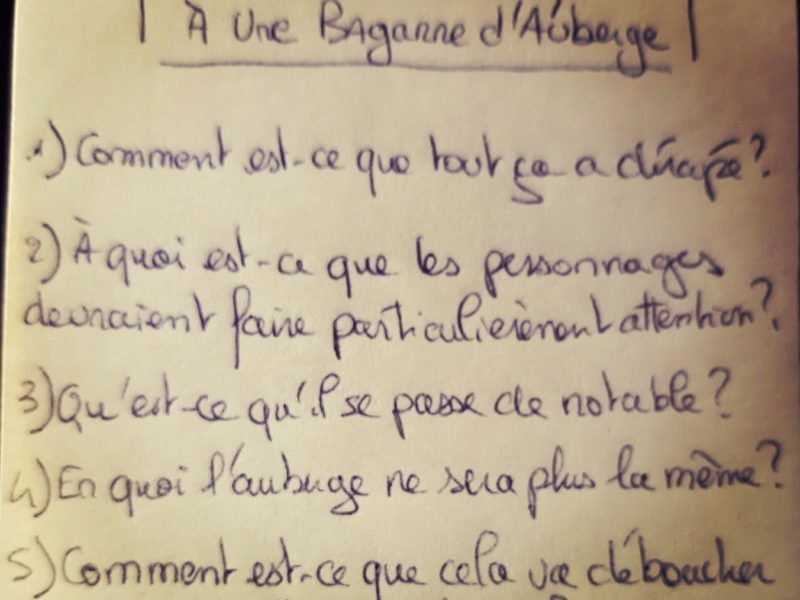 À Une BAganne d'Auberge
1) Comment est-ce que tout ça a dérapé?
2) À quoi est-ce que les personnages
devraient faire particulièrement attention?
3) Qu'est-ce qu'il se passe de notable?
4) En quoi l'auberge ne sera plus la même?
5) Comment est-ce que cela va déboucher